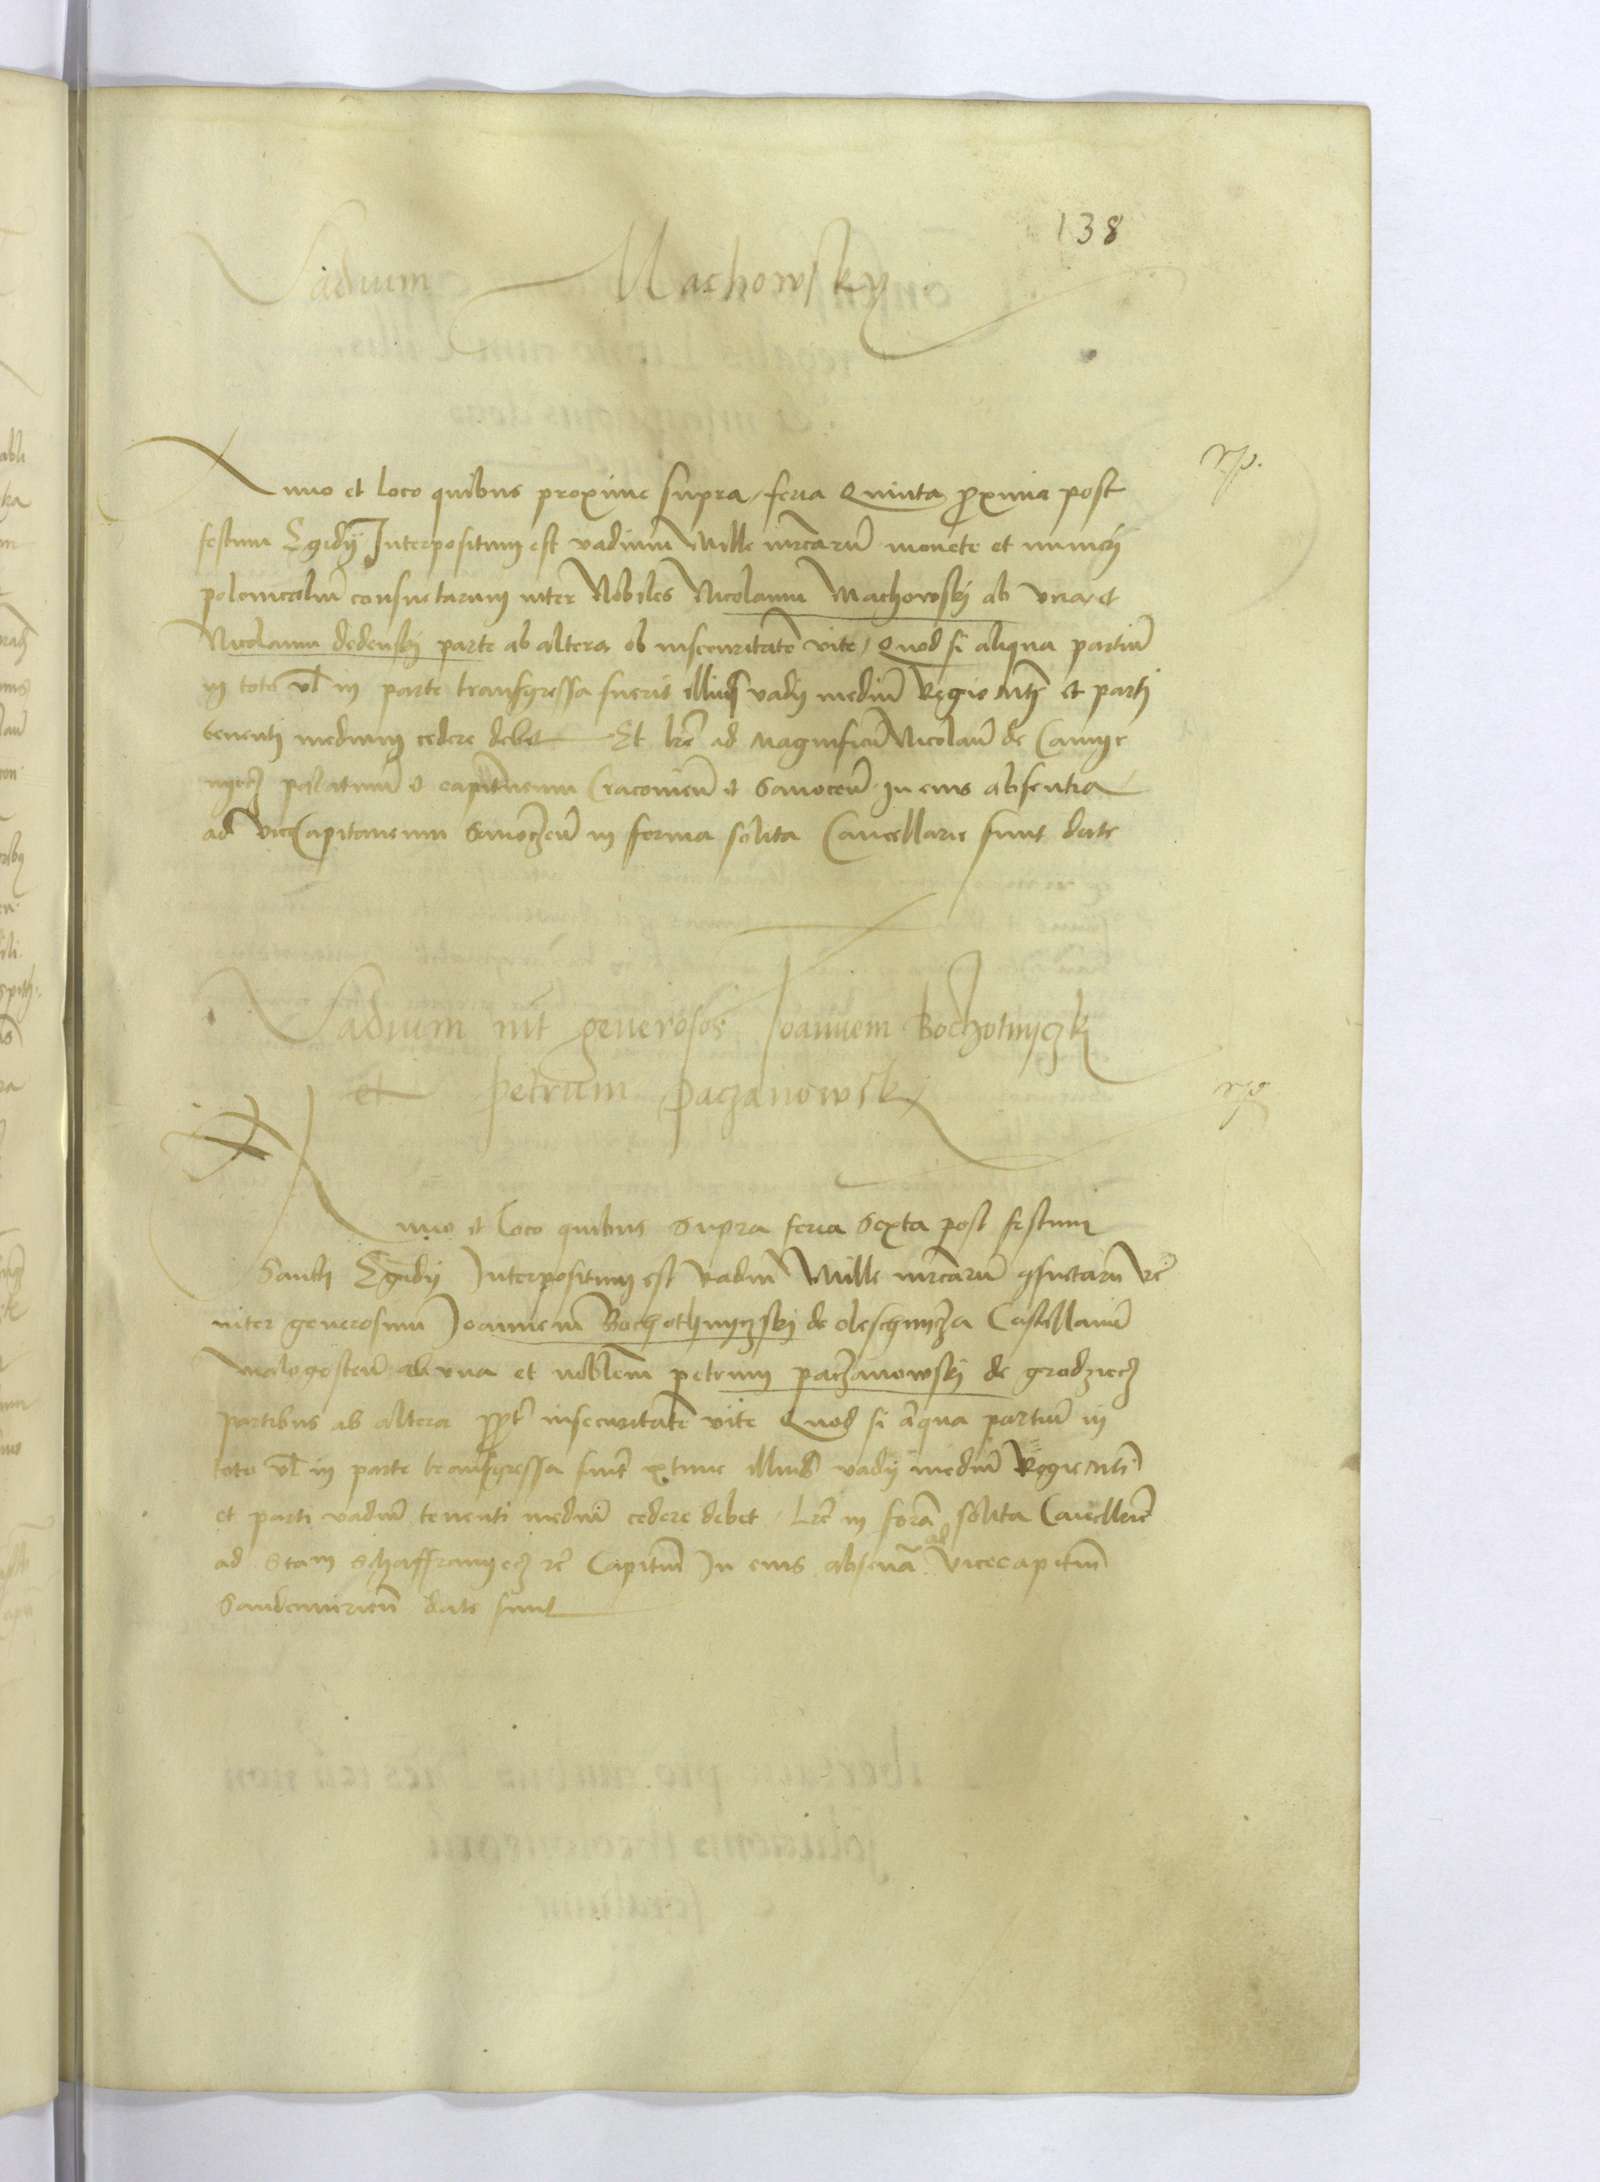 138
Vadium Machowsky
Anno et loco quibus proxime supra, feria Quinta proxima post
festum Egidij Interpositum est vadium Mille mrcarũ monete et numeri
polonicaliũ consuetarum inter Nobiles Nicolaum Machowskj ab vna, et
Nicolaum dedenskj parte ab altera ob insecuritatẽ vite, Quod si aliqua partiũ
in toto vl in parte transgressa fuerit illius vadij mediũ Regie Mti et parti
tenenti medium cedere debet Et lrẽ ad Magnificũ Nicolaũ de Camye
nyecz palatinũ et capitaneum Cracovieñ et Sanoceñ In eius absentia
ad viceCapitaneum Sanoczeñ in forma solita Cancellarie sunt date
Vadium int generosos Joannem Bochotnyczky
et Petrum paczanowsky
Anno et loco quibus supra feria Sexta post festum
Sancti Egidij Interpositum est vadiũ Mille mrcarũ 9suetarũ rc̃
inter generosum Joannem Bochothnyczskj de oleschnycza Castellanũ
malogosteñ ab vna et noblem petrum paczanowskj de grodziecz
partibus ab altera ppt insecuritatẽ vite Quod si aliqua partiũ in
toto vl in parte transgressa fuerit extunc illius vadij mediũ Regie Mti
et parti vadiũ tenenti mediũ cedere debet, Lrẽ in forã solita Cancellarie
ad Stam Schaffranyecz rc̃ Capitm In eius absenã ad vicecapitm
Sandomirieñ date sunt